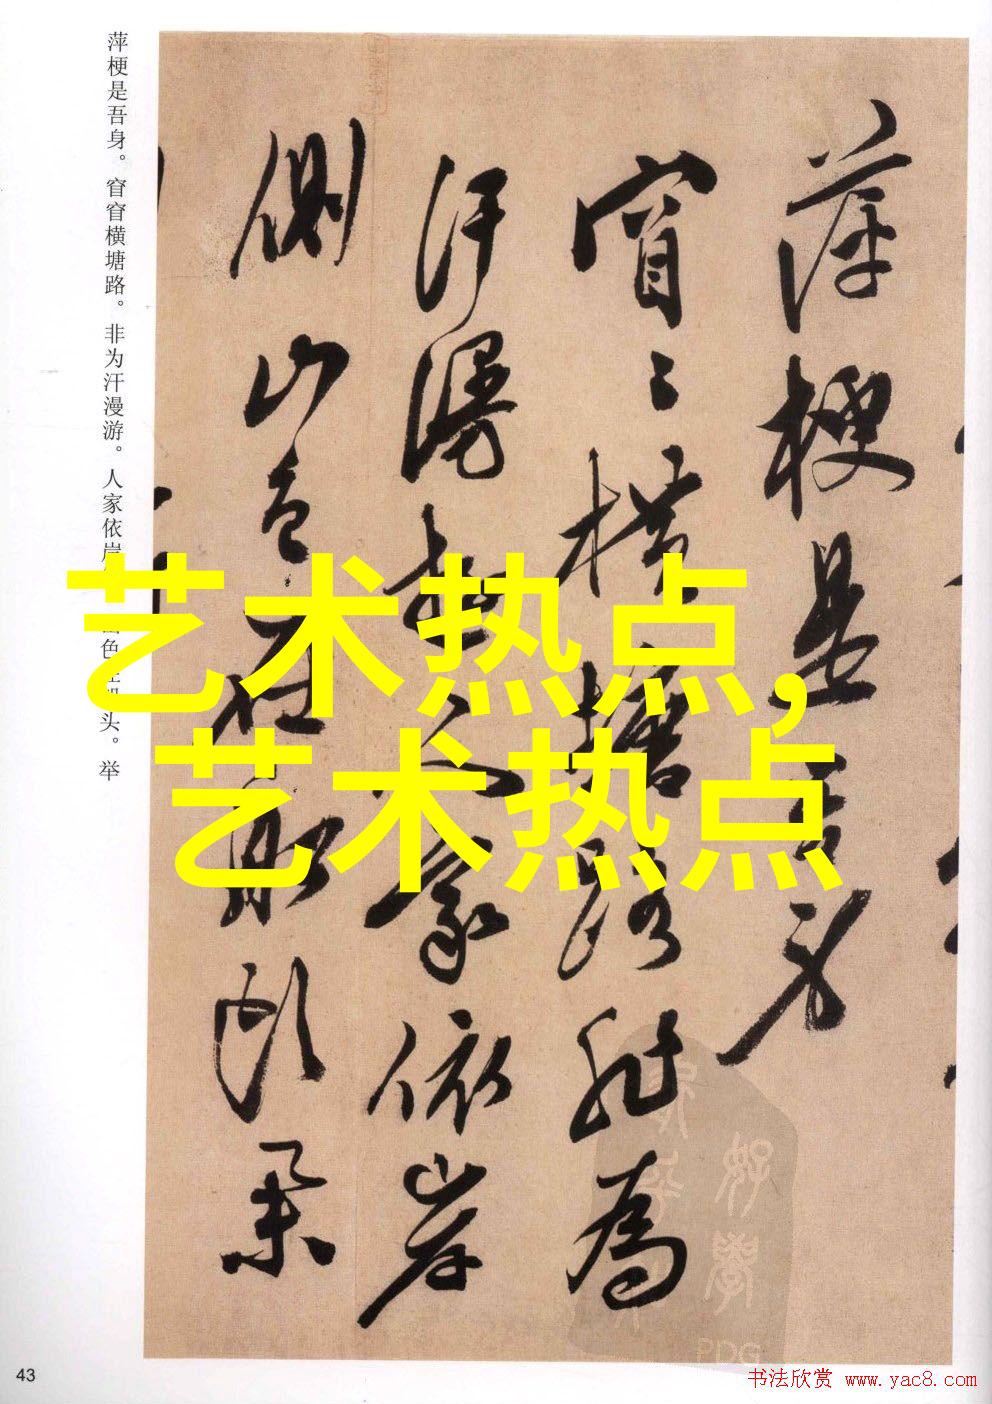 萍梗是吾身。窅窅横塘路。非为汗漫游。人家依岸色头。举
萍梗是吾身
窅〻横塘路非為
汗漫遊人家依岸
側山色在船頭
艺术热点,
艺术热点
PDG
43
书法欣赏 www.yac8.com